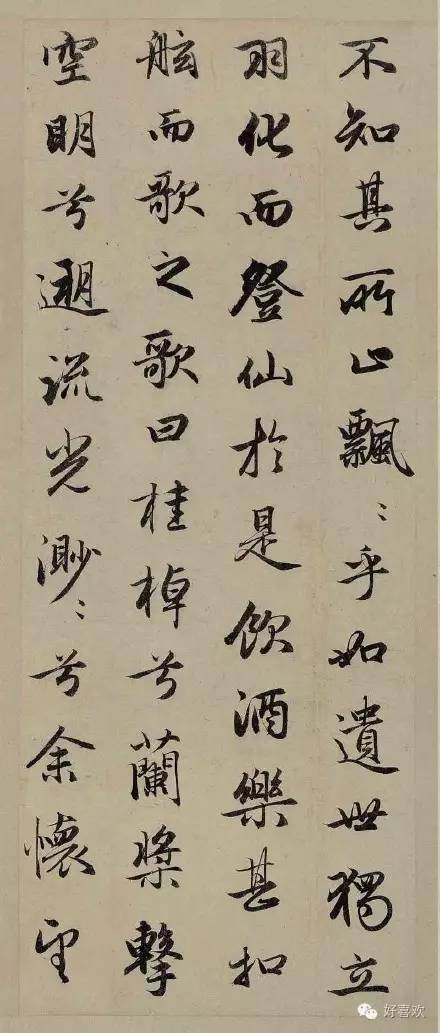 不知其所止飄〻乎如遺世獨立
羽化而登仙於是飲酒樂甚扣
舷而歌之歌曰桂棹兮蘭槳擊
空明兮遡流光渺〻兮余懷望
好喜欢